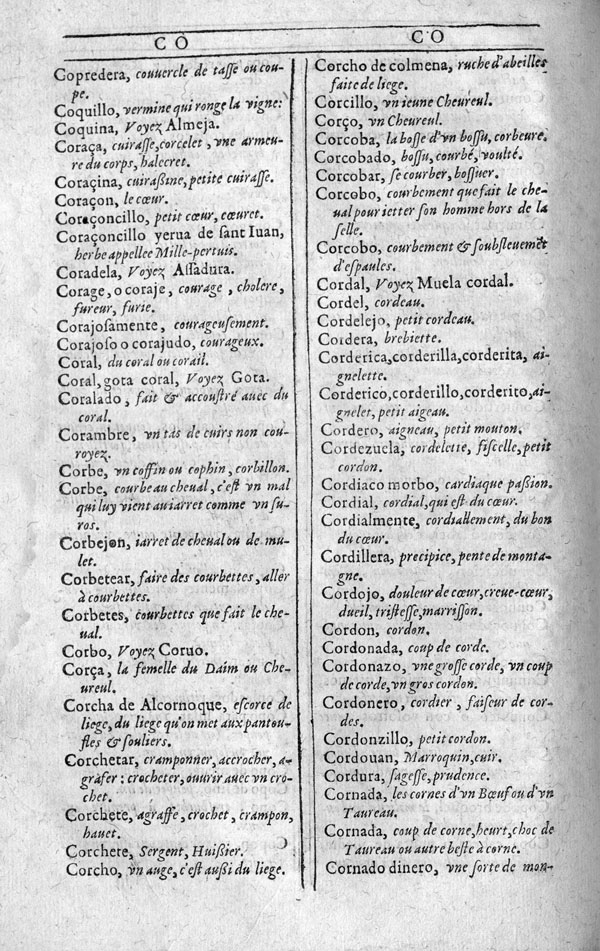 CO
Copredera, couuercle de tasse ou cou-
pe.
Coquillo, vermine qui ronge la vigne:
Coquina, Voyez Almeja.
Coraça, cuirasse, corcelet, vne armeu-
re du corps, halecret.
Coraçina, cuiraßine, petite cuirasse.
Coraçon, le cœur.
Coraçoncillo, petit cœur, cœuret.
Coraçoncillo yerua de sant Iuan,
herbe appellee Mille-pertuis.
Coradela, Voyez Assadura.
Corage, o coraje, courage, cholere,
fureur, furie.
Corajosamente, courageusement.
Corajoso o corajudo, courageux.
Coral, du coral ou corail.
Coral, gota coral, Voyez Gota.
Coralado, fait & accoustré auec du
coral.
Corambre, vn tas de cuirs non cou-
royez.
Corbe, vn coffin ou cophin, corbillon.
Corbe, courbe au cheual, c'est vn mal
qui luy vient au iarret comme vn su-
ros.
Corbejon, iarret de cheual ou de mu-
let.
Corbetear, faire des courbettes, aller
à courbettes.
Corbetes, courbettes que fait le che-
ual.
Corbo, Voyez Coruo.
Corça, la femelle du Daim ou Che-
ureul.
Corcha de Alcornoque, escorce de
liege, du liege qu'on met aux pantou-
fles & souliers.
Corchetar, cramponner, accrocher, a-
grafer: crocheter, ouurir auec vn cro-
chet.
Corchete, agraffe, crochet, crampon,
hauet.
Corchete, Sergent, Huißier.
Corcho, vn auge, c'est außi du liege.
CO
Corcho de colmena, ruche d'abeilles
faite de liege.
Corcillo, vn ieune Cheureul.
Corço, vn Cheureul.
Corcoba, la bosse d'vn bossu, corbeure.
Corcobado, bossu, courbé, voulté.
Corcobar, se courber, bossuer.
Corcobo, courbement que fait le che-
ual pour ietter son homme hors de la
selle.
Corcobo, courbement & soubsleuemēt
d'espaules.
Cordal, Voyez Muela cordal.
Cordel, cordeau.
Cordelejo, petit cordeau.
Cordera, brebiette.
Corderica, corderilla, corderita, ai-
gnelette.
Corderico, corderillo, corderito, ai-
gnelet, petit aigeau.
Cordero, aigneau, petit mouton.
Cordezuela, cordelette, fiscelle, petit
cordon.
Cordiaco morbo, cardiaque paßion.
Cordial, cordial, qui est du cœur.
Cordialmente, cordiallement, du bon
du cœur.
Cordillera, precipice, pente de monta-
gne.
Cordojo, douleur de cœur, creue-cœur,
dueil, tristesse, marrisson.
Cordon, cordon.
Cordonada, coup de corde.
Cordonazo, vne grosse corde, vn coup
de corde, vn gros cordon.
Cordonero, cordier, faiseur de cor-
des.
Cordonzillo, petit cordon.
Cordouan, Marroquin, cuir.
Cordura, sagesse, prudence.
Cornada, les cornes d'vn Bœuf ou d'vn
Taureau.
Cornada, coup de corne, heurt, choc de
Taureau ou autre beste à corne.
Cornado dinero, vne sorte de mon-